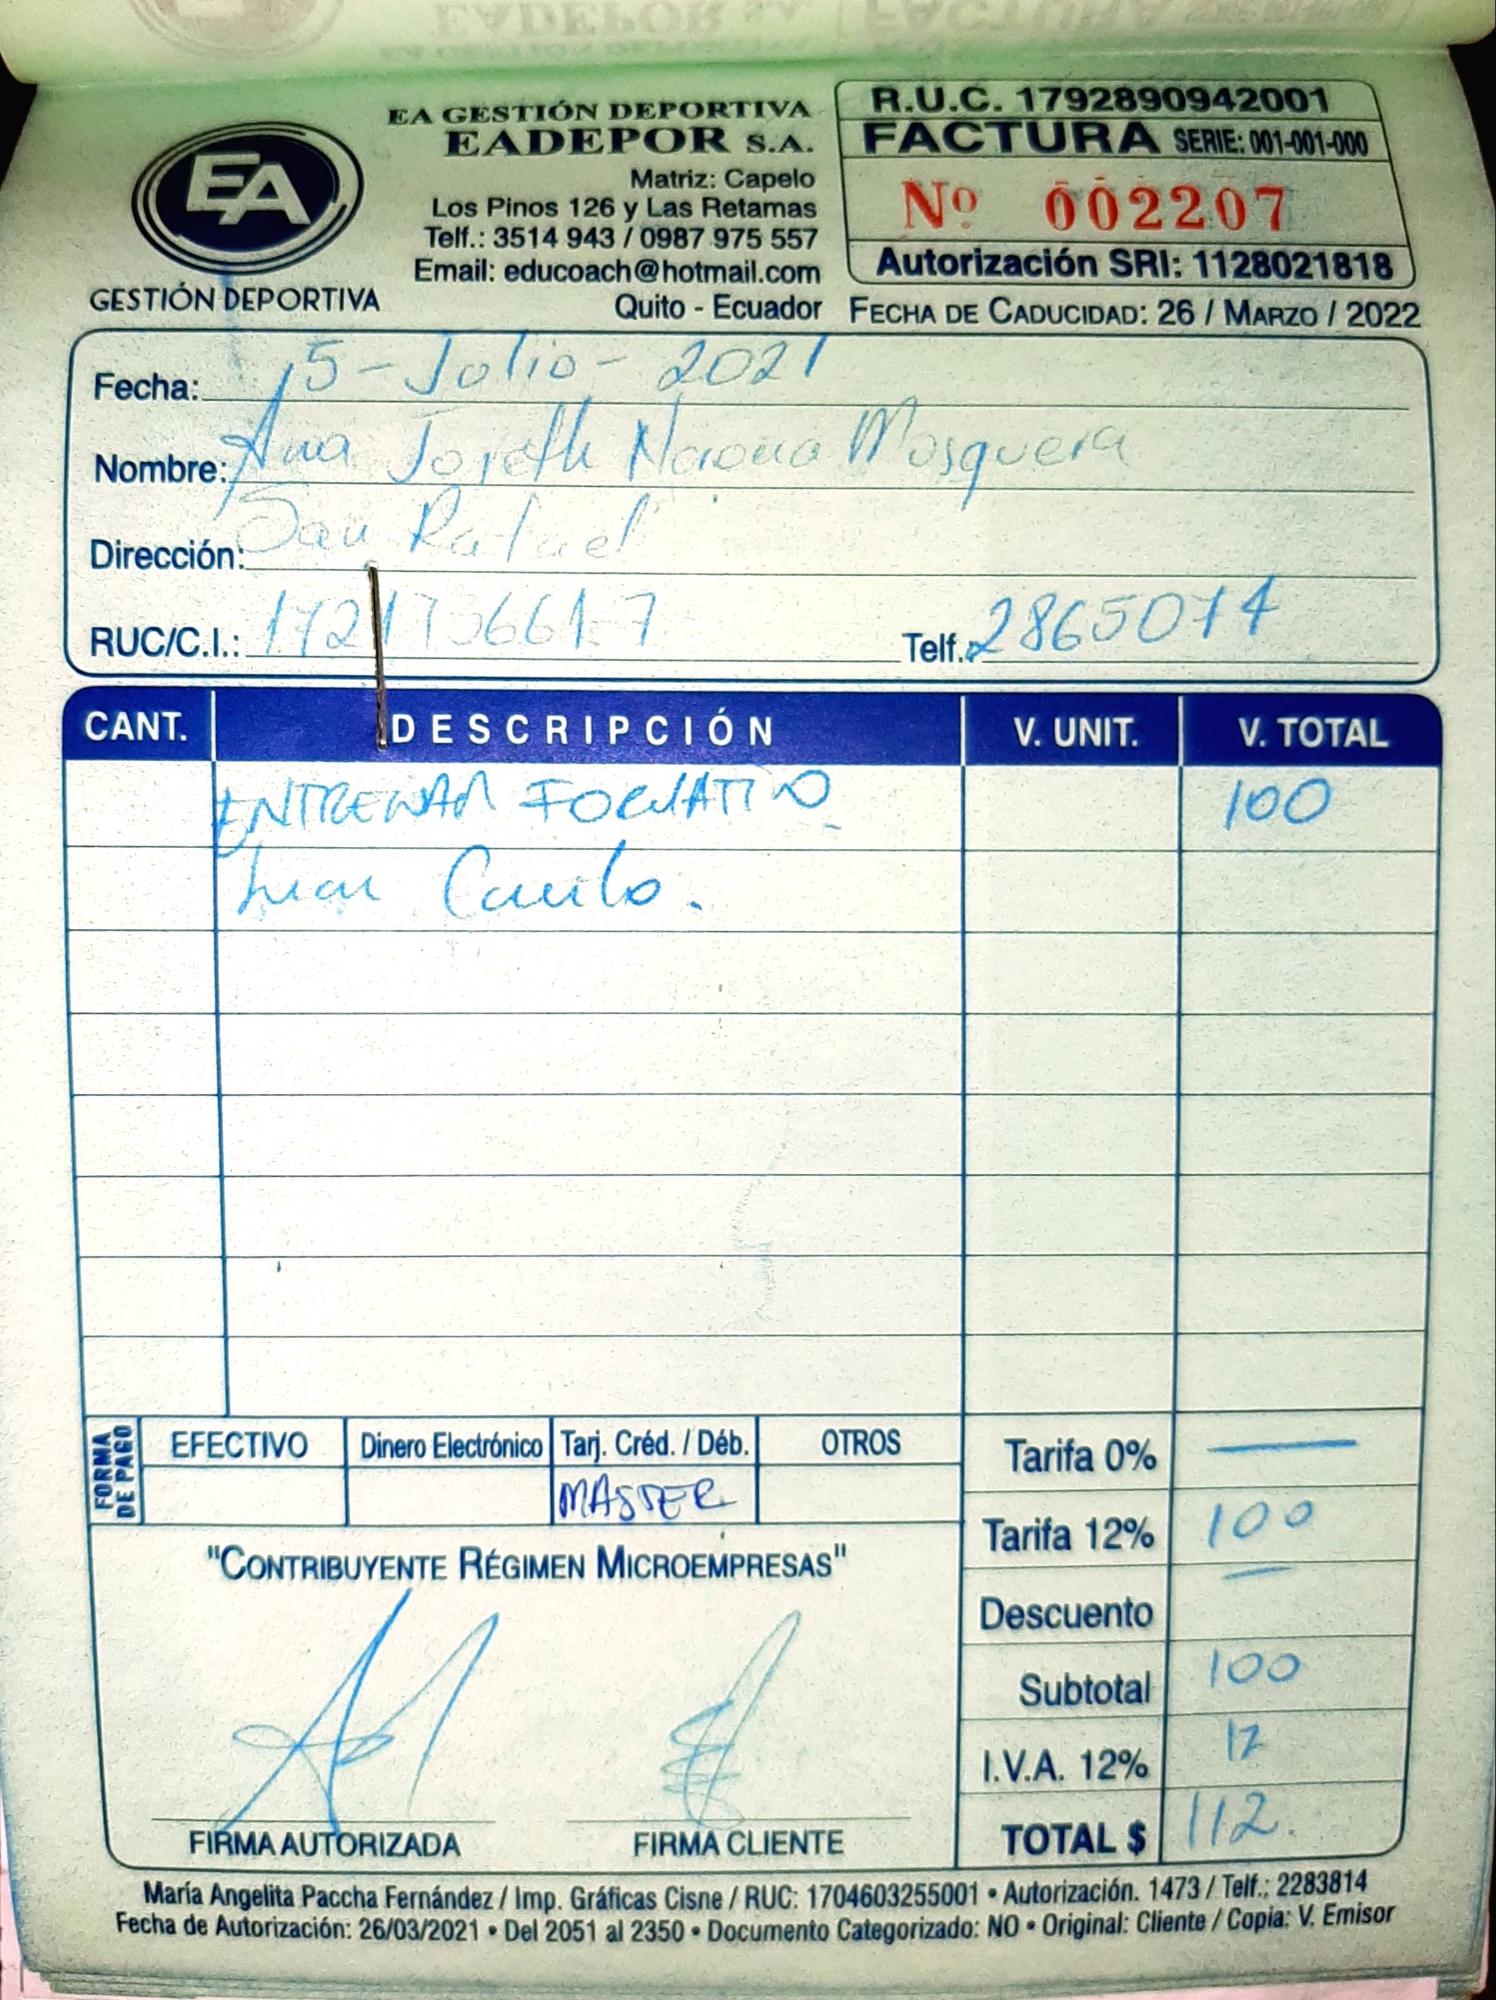 EA
GESTIÓN DEPORTIVA
EA GESTIÓN DEPORTIVA
EADEPOR S.A.
Matriz: Capelo
Los Pinos 126 y Las Retamas
Telf.: 3514 943 / 0987 975 557
Email: educoach@hotmail.com
Quito - Ecuador
R.U.C. 1792890942001
FACTURA SERIE: 001-001-000
Nº 002207
Autorización SRI: 1128021818
FECHA DE CADUCIDAD: 26 / MARZO / 2022
Fecha: 15-Julio-2021
Nombre: Ana Joseth Mosquera
Dirección: San Rafael
RUC/C.I.: Telf.: 2865074
CANT. DESCRIPCIÓN V. UNIT. V. TOTAL
ENTRENAM FORMATIVO 100
FORMA DE PAGO
EFECTIVO Dinero Electrónico Tarj. Créd. / Déb. OTROS
MASTER
Tarifa 0% —
Tarifa 12% 100
Descuento —
Subtotal 100
I.V.A. 12% 12
TOTAL $ 112.
"CONTRIBUYENTE RÉGIMEN MICROEMPRESAS"
FIRMA AUTORIZADA FIRMA CLIENTE
María Angelita Paccha Fernández / Imp. Gráficas Cisne / RUC: 1704603255001 • Autorización. 1473 / Telf.: 2283814
Fecha de Autorización: 26/03/2021 • Del 2051 al 2350 • Documento Categorizado: NO • Original: Cliente / Copia: V. Emisor